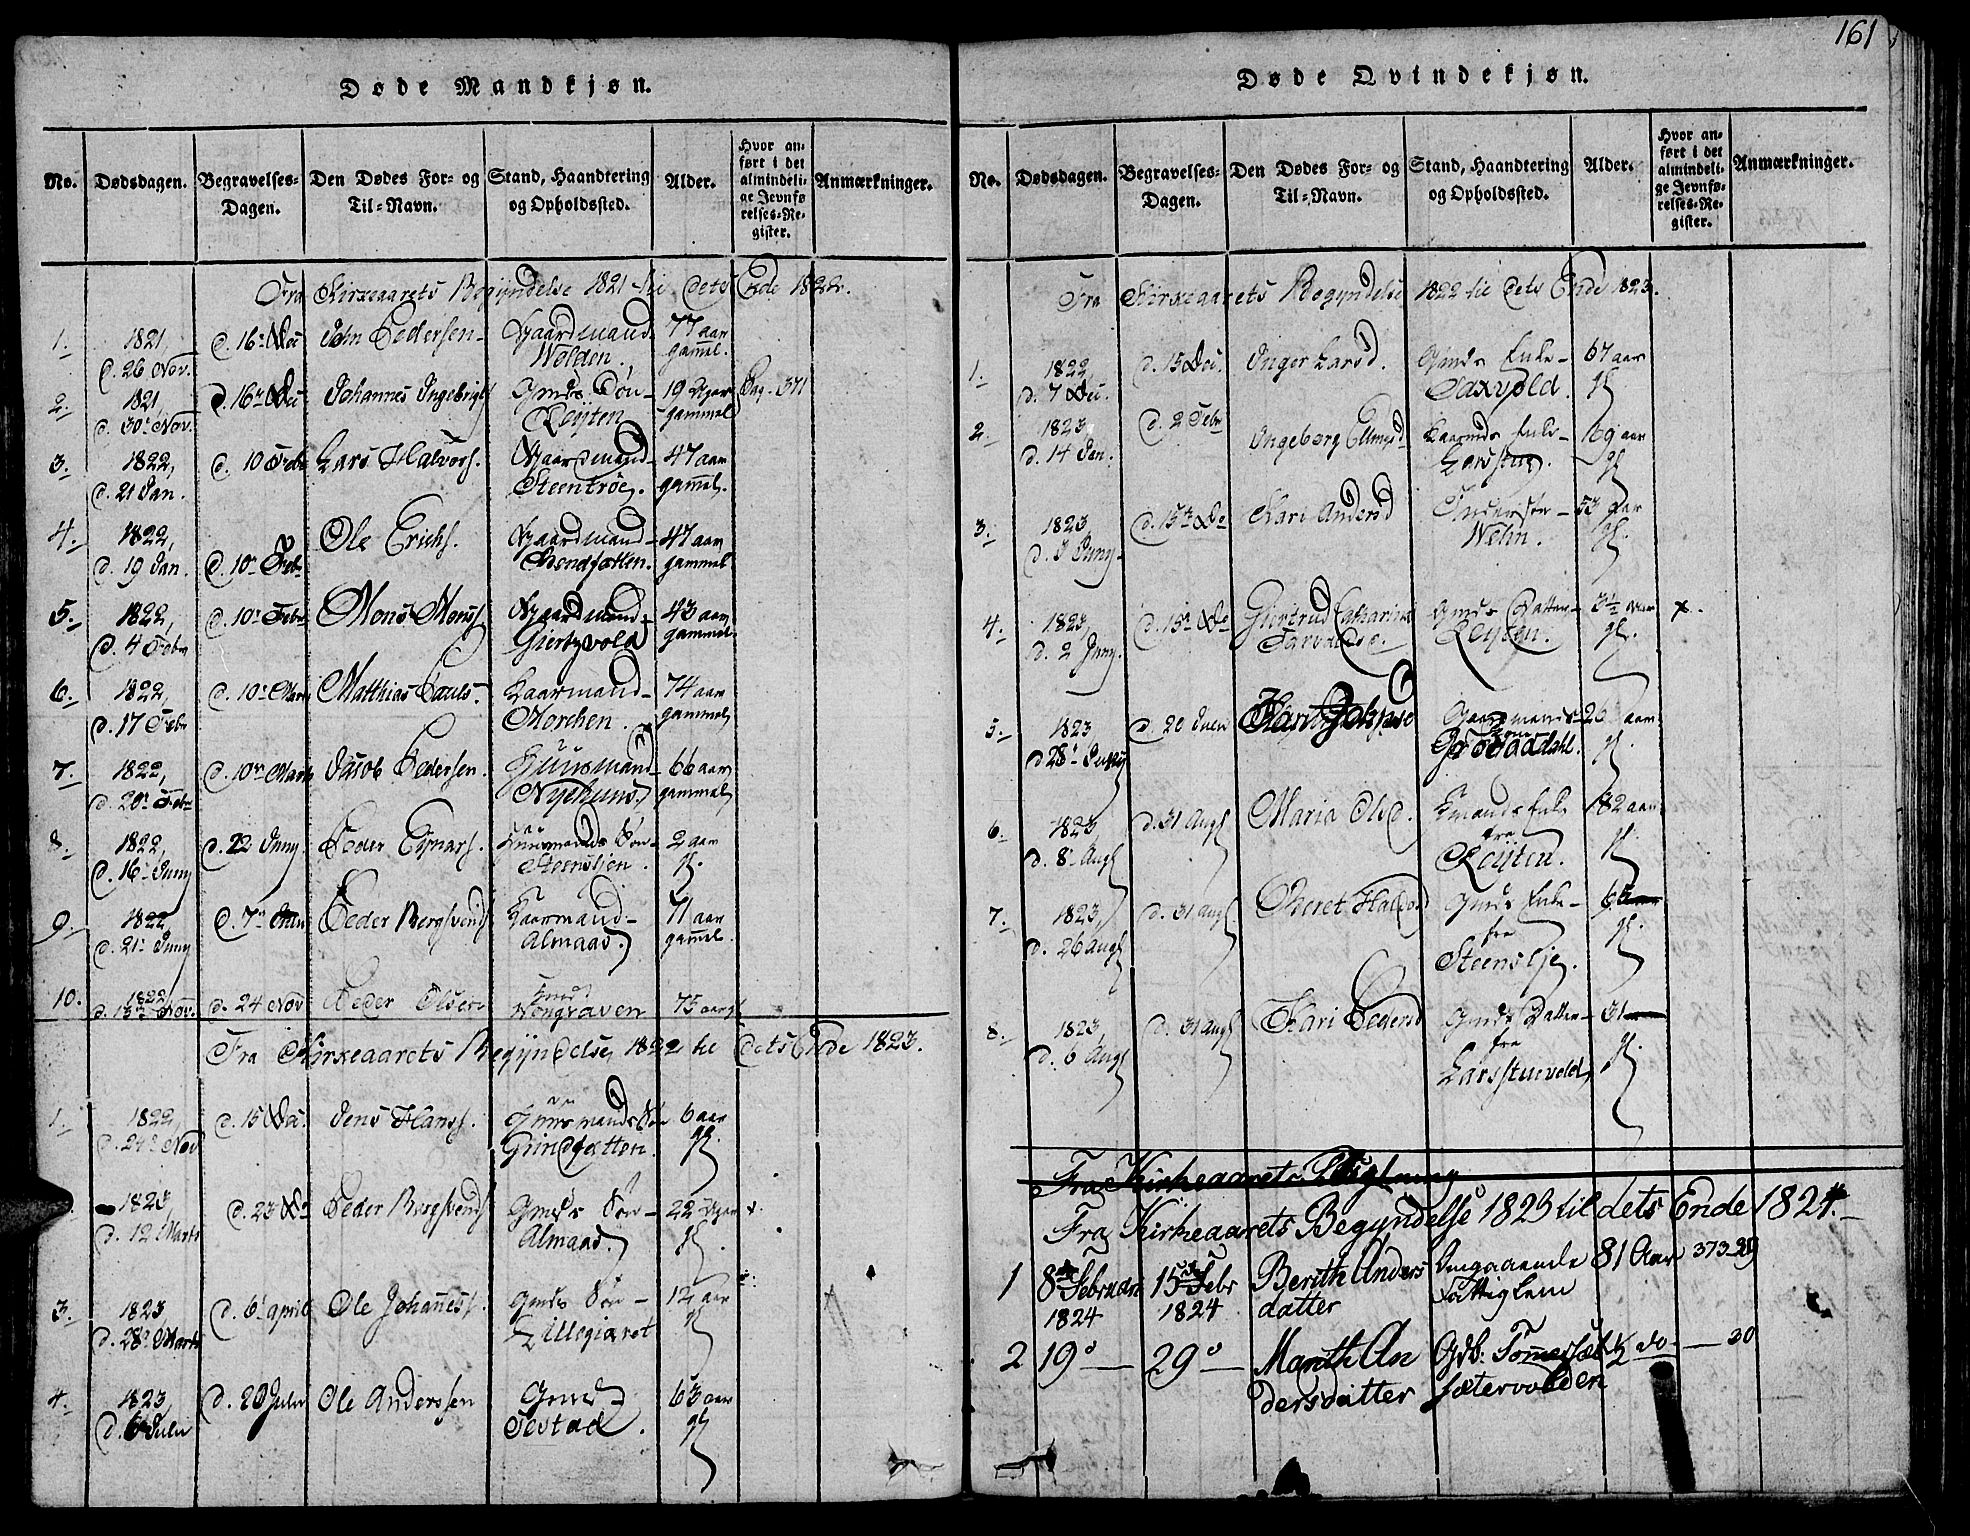 161
Døde Mandkjøn.
No. Dødsdagen. Begravelses-Dagen. Den Dødes For- og Til-Navn. Stand, Haandtering og Opholdssted. Alder. Hvor anført i det almindelige Jevnførelses-Register. Anmærkninger.
Fra Kirkeaarets Begyndelse 1821 til dets Ende 1822.
1. 1821, d. 26 Nov. d. 16 Dec John Pedersen Gaardmand Wolden. 77 aar gammel.
2. 1821, d. 30 Nov. d. 16 Dec Johannes Ingebrigts Gmds Søn Røyten 19 Aar gammel Pag. 371
3. 1822, d. 21 Jan. d. 10 Febr Lars Halvors. Gaardmand Steentrøe. 47 aar gammel.
4. 1822, d. 19 Jan. d. 10 Feb Ole Erichs. Gaardmand 47 aar gammel
5. 1822, d. 4 Febr d. 10 Febr Mons Mons Gaardmand Giertzvold 43 aar gammel
6. 1822, d. 17 Febr d. 10 Marts Matthias Pauls. Kaarmand Morchen. 74 aar gammel
7. 1822, d. 20 Febr d. 10 Marts Jacob Pedersen. Huusmand Nyehuus. 66 aar gammel
8. 1822, d. 16 Juny d. 22 Juny Peder Ejnars. Huusmands Søn Steensljen. 2 aar gl.
9. 1822, d. 21 Juny d. 7 Peder Bergsvends Kaarmand Almaas. 71 aar gammel.
10. 1822 d. 13 Nov. d. 24 Nov Peder Olsen 75 aar gl
Fra Kirkeaarets Begyndelse 1822 til dets Ende 1823.
1. 1822, d. 24 Nov d. 15 Dec. Jens Hans. Huusmands Søn Grindfatten. 6 aar gl.
1823, d. 12 Marts d. 23 Do Peder Bergsvends Gmds Søn Almaas. 22 Aar gl. x.
3. 1823 d. 28 Marts d. 6 april Ole Johanness. Gmds Søn Lillegiæret 12 aar gl
4. 1823, d. 6 Julii d. 20 Julii Ole Anderssen Gmd Testad. 63 aar gl
Døde Qvindekjøn.
No. Dødsdagen. Begravelses-Dagen. Den Dødes For- og Til-Navn. Stand, Haandtering og Opholdssted. Alder. Hvor anført i det almindelige Jevnførelses-Register. Anmærkninger.
Fra Kirkeaarets Begyndelse 1822 til dets Ende 1823.
1. 1822, d. 7 Dec. d. 15 Dec. Inger Larsd Gmds Enke Saxvold. 67 aar gl
2. 1823, d. 14 Jan. d. 2 Febr Ingeborg Kaarmds Enke Larsstue. 69 aar gl.
3. 1823 Juny d. 15 Do Kari Andersd Welin. 53 aar gl.
4. 1823, d. 2 Juny. d. 15 Do Giertrud Catharina Gmds Datter Røyten. gl. x.
5. 1823 d. 20 Julii Gaardmands 26 aar gl.
6. 1823, d. 8 Augs d. 31 Augs Maria Olsd. Kmands Enke fra Røyten. 82 aar gl.
7. 1823, d. 26 Augs d. 31 Augs. Gmds Enke fra Steenslje. gl.
8. 1823, d. 6 Augs d. 31 Augs Kari Pedersd Gmds Datter fra Larsstuevold 31 gl.
Fra Kirkeaarets
Fra Kirkeaarets Begyndelse 1823 til dets Ende 1824.
1 8de Februar 1824 15de Febr 1824 Berith Andersdatter Omgaaende Fattiglem 81 Aar 373-29
2 19 29 Marith Andersdatter Gdb: Tommes sætervolden ½ do 30